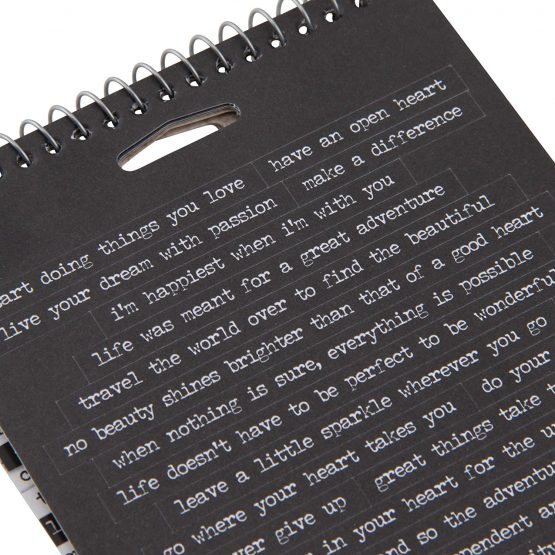 art doing things you love have an open heart
live your dream with passion make a difference
i'm happiest when i'm with you
life was meant for a great adventure
travel the world over to find the beautiful
no beauty shines brighter than that of a good heart
when nothing is sure, everything is possible
life doesn't have to be perfect to be wonderfu
leave a little sparkle wherever you go
go where your heart takes you do your
ver give up great things take
in your heart for the u
nd so the adventu
pendent an